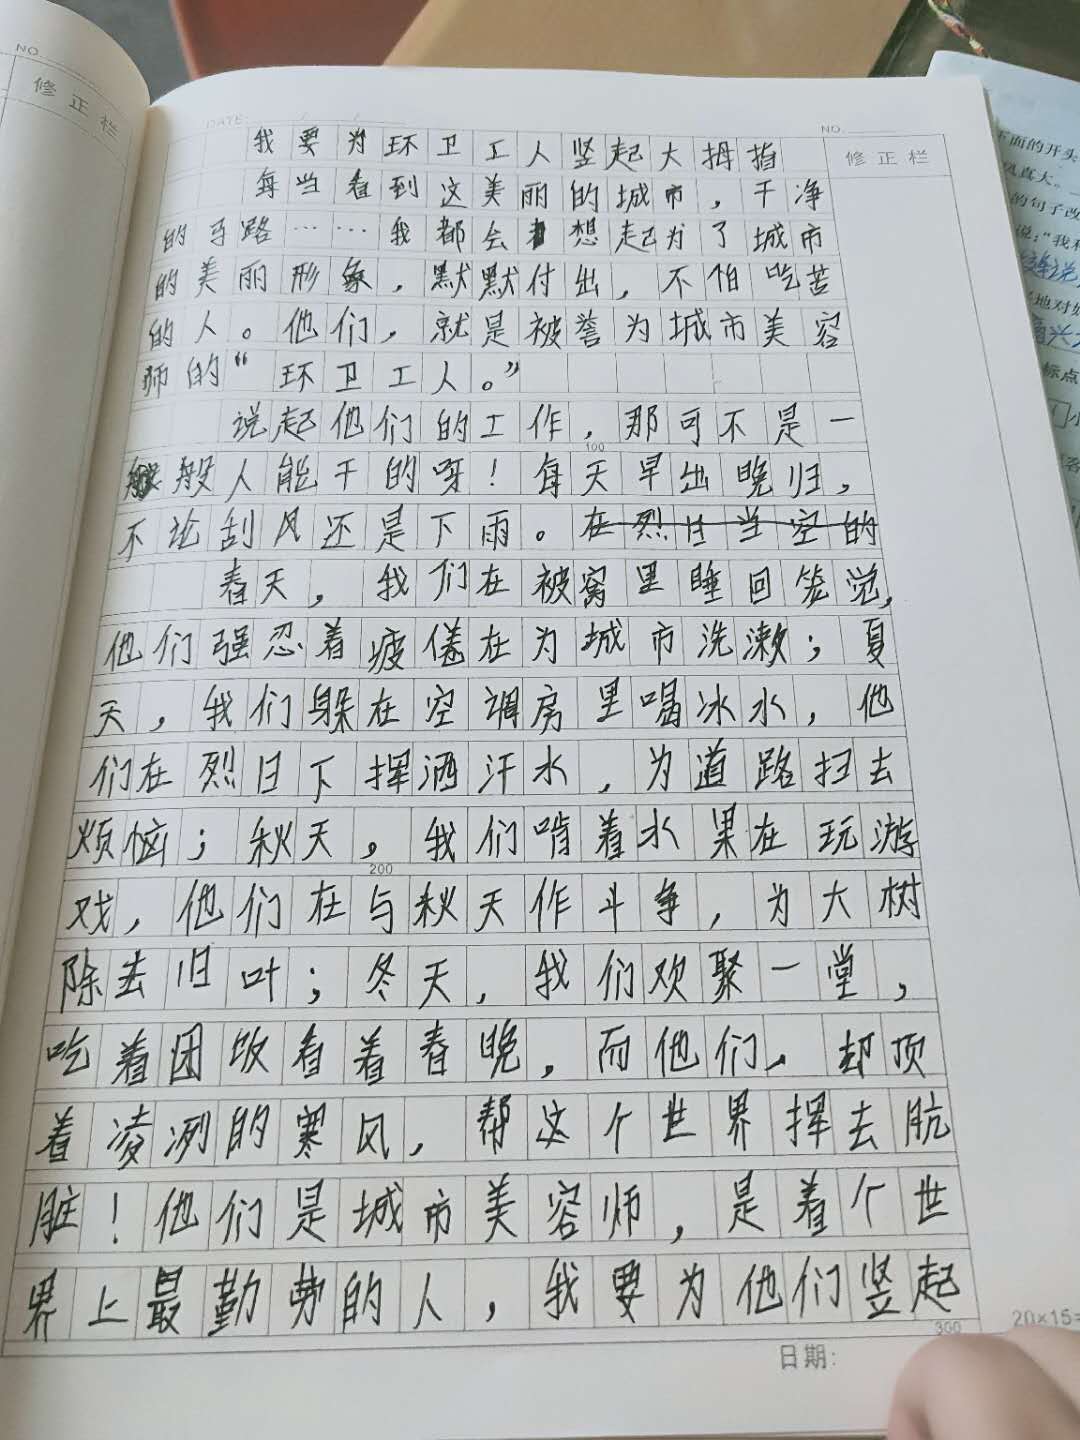 NO.
修正栏
DATE: / /
NO.
修正栏
我要为环卫工人竖起大拇指
每当看到这美丽的城市，干净
的马路……我都会想起为了城市
的美丽形象，默默付出，不怕吃苦
的人。他们，就是被誉为城市美容
师的“环卫工人。”
说起他们的工作，那可不是一
100
般人能干的呀！每天早出晚归，
不论刮风还是下雨。在烈日当空的
春天，我们在被窝里睡回笼觉，
他们强忍着疲倦在为城市洗漱；夏
天，我们躲在空调房里喝冰水，他
们在烈日下挥洒汗水，为道路扫去
烦恼；秋天，我们啃着水果在玩游
200
戏，他们在与秋天作斗争，为大树
除去旧叶；冬天，我们欢聚一堂，
吃着团饭看着春晚，而他们，却顶
着凌冽的寒风，帮这个世界挥去肮
脏！他们是城市美容师，是着个世
界上最勤劳的人，我要为他们竖起
300
20×15=
日期：
下面的开头
风真大。
的句子改
说：“我和
地对如
标点